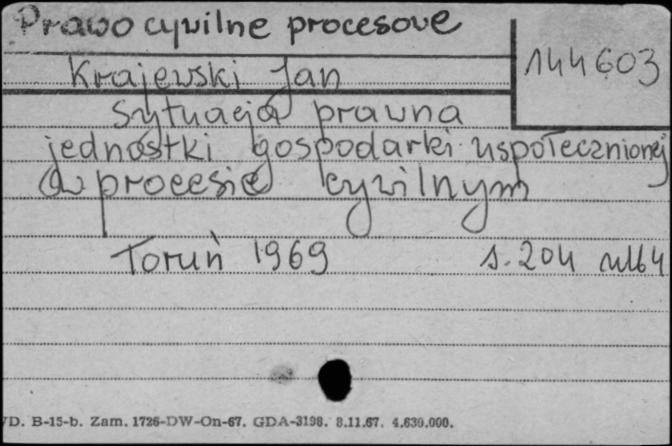 Prawo cywilne procesowe
144603
Krajewski Jan
Sytuacja prawna
jednostki gospodarki uspołecznionej
w procesie cywilnym
Toruń 1969 s. 204 nlb 4
D. B-15-b. Zam. 1726-DW-On-67. GDA-3198. 8.11.67. 4.630.000.